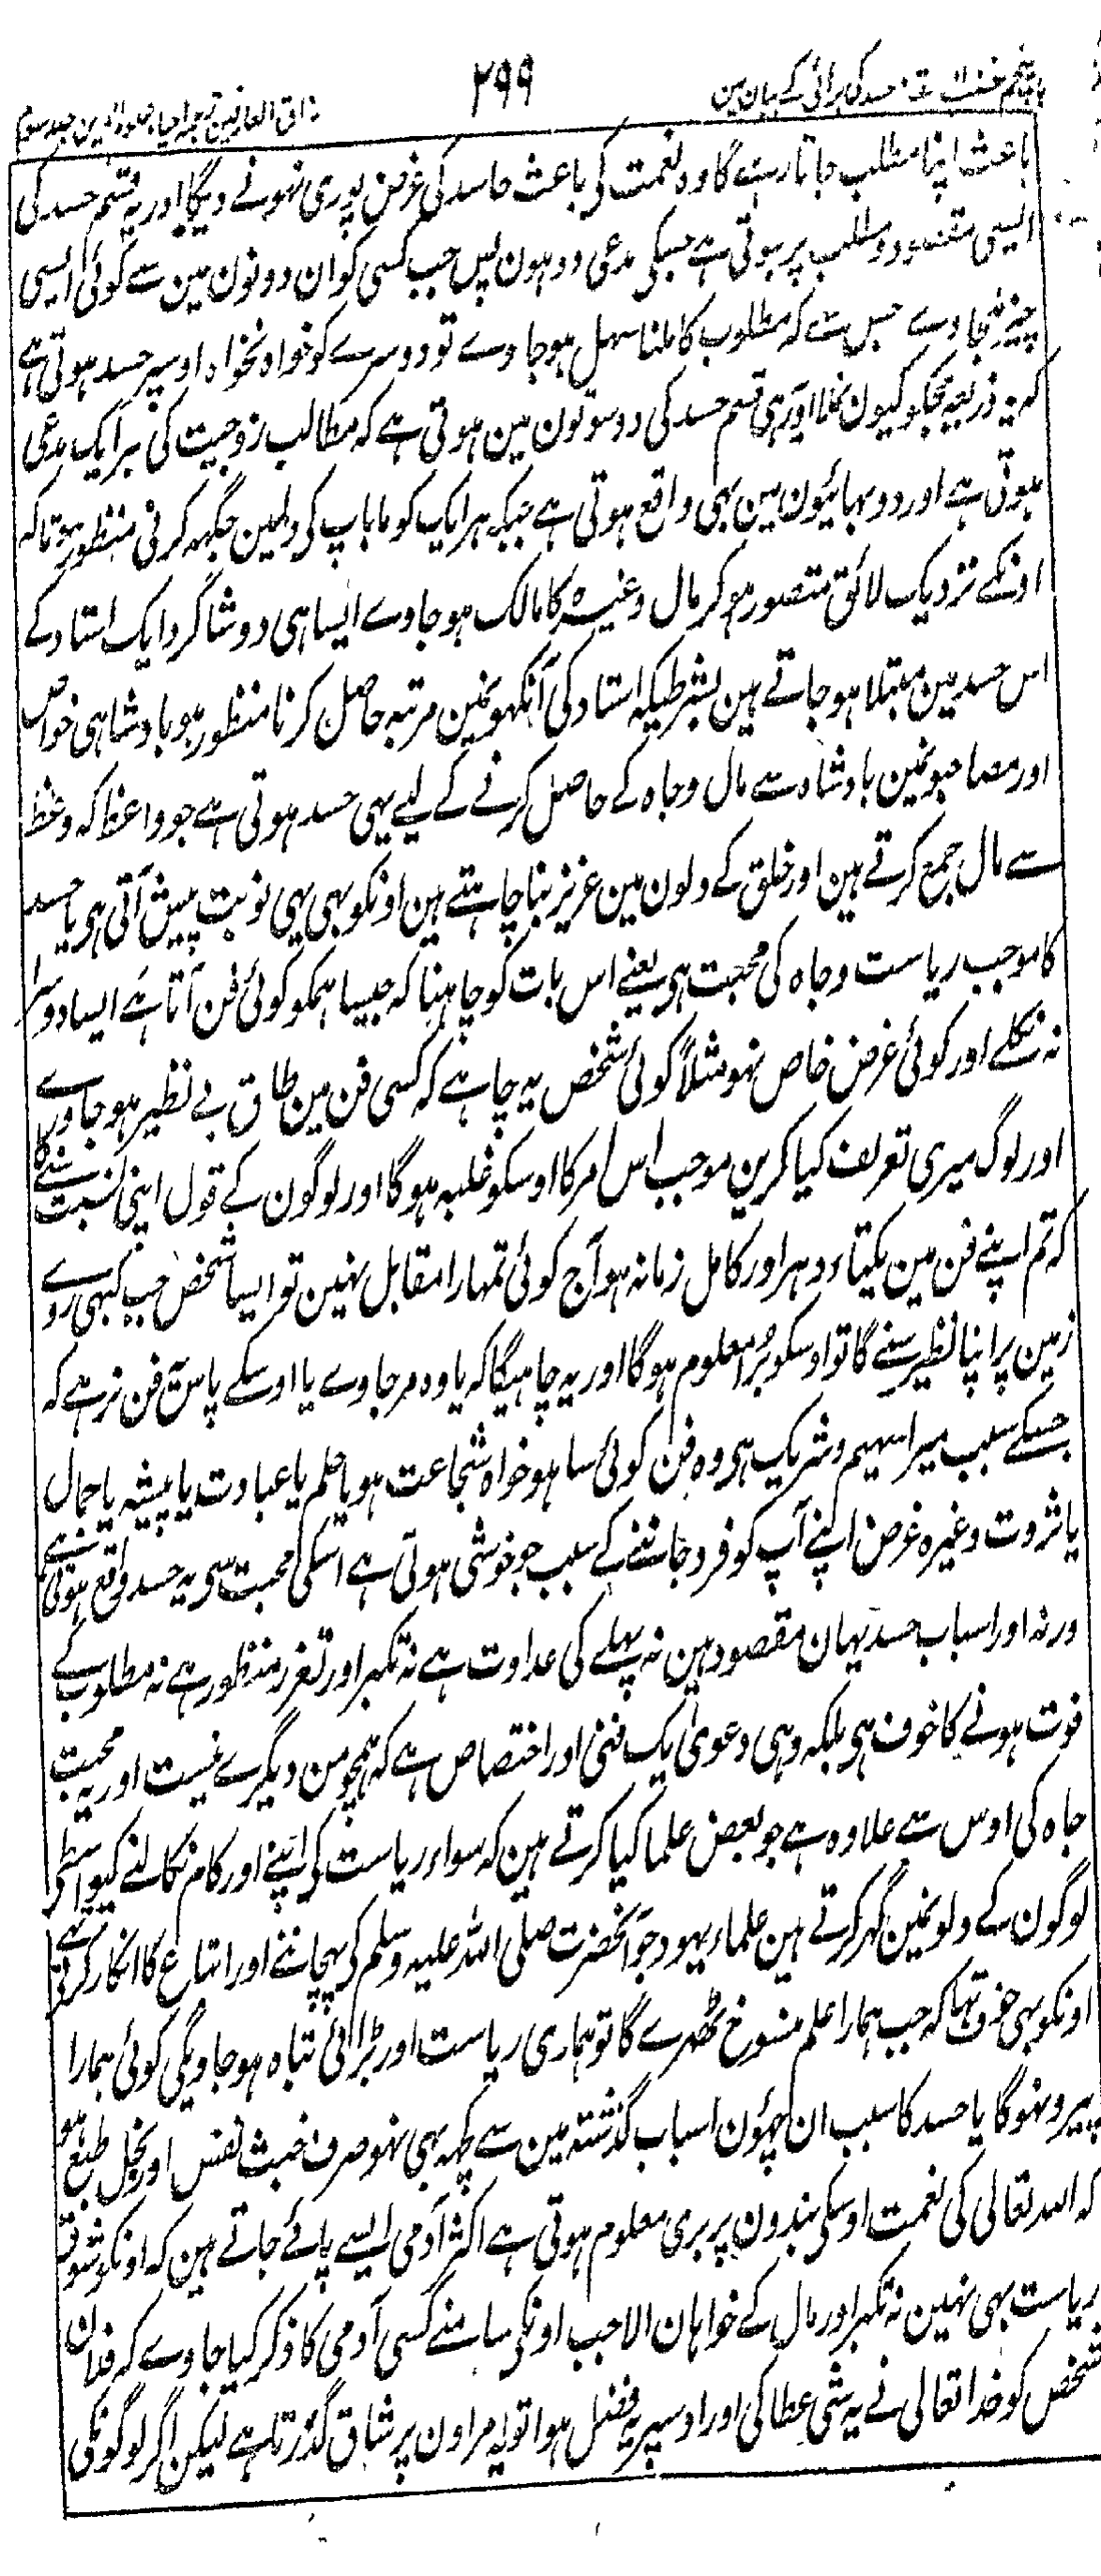 باب پنجم حسد کی برائی کے بیان مین
۲۹۹
مذاق العارفین ترجمہ احیاء علوم الدین جلد سوم
باعث اپنا مطلب جاتا رہے گا وہ نعمت کی باعث حاسد کی غرض پوری نہونے دیگا اور یہ قسم حسد کی
ایسی مقصود و مطلب پر ہوتی ہے جسکی مدعی دو ہون پس جب کسی کو ان دونون مین سے کوئی ایسی
چیز ملجاوے جس سے کہ مطلوب کا ملنا سہل ہو جاوے تو دوسرے کو خواہ نخواہ اوسپر حسد ہوتی ہے
کہ یہ ذریعہ مجکو کیون نملا اور یہی قسم حسد کی دو سوتون مین ہوتی ہے کہ مطالب زوجیت کی ہر ایک مدعی
ہوتی ہے اور دو بہائیون مین بہی واقع ہوتی ہے جبکہ ہر ایک کو ما باپ کی دلمین جگہہ کرنی منظور ہو تاکہ
اونکے نزدیک لائق متصور ہو کر مال وغیرہ کا مالک ہو جاوے ایسا ہی دو شاگرد ایک استاد کے
اس حسد مین مبتلا ہو جاتے ہین بشرطیکہ استاد کی آنکہونمین مرتبہ حاصل کرنا منظور ہو بادشاہی خواص
اور مصاحبونمین بادشاہ سے مال و جاہ کے حاصل کرنے کے لیے یہی حسد ہوتی ہے جو واعظ کہ وعظ
سے مال جمع کرتے ہین اور خلق کے دلون مین عزیز بننا چاہتے ہین اونکو بہی یہی نوبت پیش آتی ہی یا حسد
کا موجب ریاست و جاہ کی محبت ہی یعنے اس بات کو چاہنا کہ جیسا ہمکو کوئی فن آتا ہے ایسا دوسرا
نہ نکلے اور کوئی غرض خاص نہو مثلاً کوئی شخص یہ چاہے کہ کسی فن مین طاق بے نظیر ہو جاوے
اور لوگ میری تعریف کیا کرین موجب اس امر کا اوسکو غلبہ ہوگا اور لوگون کے قول اپنی نسبت سنے گا
کہ تم اپنے فن مین یکتاء دہر اور کامل زمانہ ہو آج کوئی تمہارا مقابل نہین تو ایسا شخص جب کبہی روے
زمین پر اپنا نظیر سنے گا تو اوسکو برا معلوم ہوگا اور یہ چاہیگا کہ یا وہ مر جاوے یا اوسکے پاس یہ فن نرہے کہ
جسکے سبب میرا سہیم و شریک ہی وہ فن کوئی سا ہو خواہ شجاعت ہو یا علم یا عبادت یا پیشہ یا جمال
یا ثروت وغیرہ غرض اپنے آپ کو فرد جاننے کے سبب جو خوشی ہوتی ہے اسکی محبت سی یہ حسد واقع ہوتی ہے
ورنہ اور اسباب حسد یہان مقصود ہین نہ پہلے کی عداوت ہے نہ تکبر اور تعزز منظور ہے نہ مطلوب کے
فوت ہونے کا خوف ہی بلکہ وہی دعوی یک فنی اور اختصاص ہے کہ ہمچو من دیگرے نیست اور یہ محبت
جاہ کی اوس سے علاوہ ہے جو بعض علما کیا کرتے ہین کہ سواء ریاست کی اپنے اور کام نکالنے کیواسطی
لوگون کے دلونمین گہر کرتے ہین علماء یہود جو آنحضرت صلی اللہ علیہ وسلم کی پہچاننے اور اتباع کا انکار کرتی تہے
اونکو یہی خوف تہا کہ جب ہمارا علم منسوخ ٹھہرے گا تو ہماری ریاست اور بڑائی تباہ ہو جاویگی کوئی ہمارا
پیرو نہوگا یا حسد کا سبب ان چہئون اسباب گذشتہ مین سے کچہہ بہی نہو صرف خبث نفس اور بخل طبع ہو
کہ اللہ تعالی کی نعمت اوسکی بندون پر بری معلوم ہوتی ہے اکثر آدمی ایسے پائے جاتے ہین کہ اونکو شوق
ریاست بہی نہین نہ تکبر اور مال کے خواہان الا جب اونکی سامنے کسی آدمی کا ذکر کیا جاوے کہ فلان
شخص کو خدا تعالی نے یہ شی عطا کی اور اوسپر یہ فضل ہوا تو یہ امر اون پر شاق گذرتا ہے لیکن اگر لوگونکی